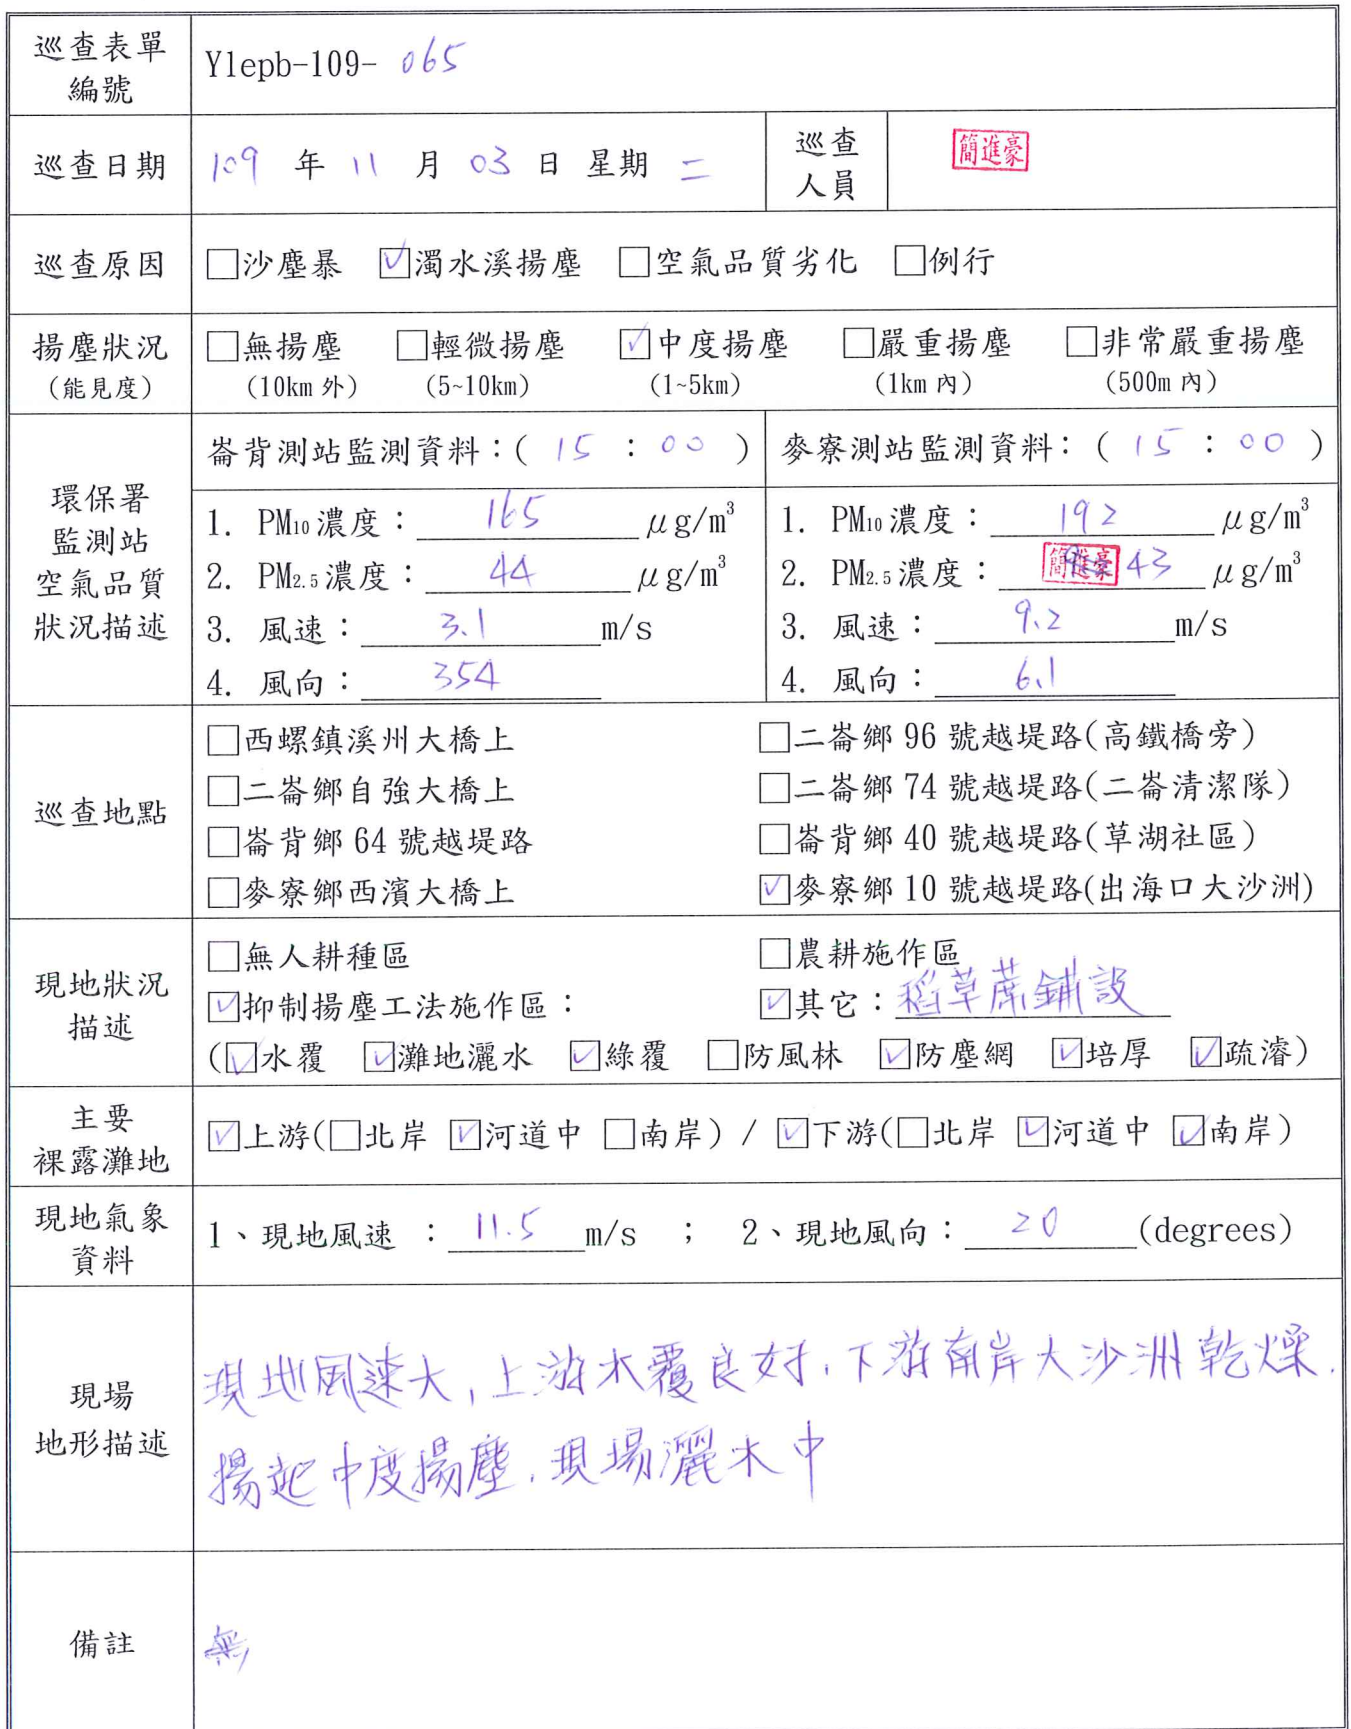 巡查表單編號 Ylepb-109- 065
巡查日期 109 年 11 月 03 日 星期 二 巡查人員 簡進豪
巡查原因 □沙塵暴 ☑濁水溪揚塵 □空氣品質劣化 □例行
揚塵狀況 □無揚塵 □輕微揚塵 ☑中度揚塵 □嚴重揚塵 □非常嚴重揚塵
(能見度) (10km 外) (5~10km) (1~5km) (1km 內) (500m 內)
環保署監測站空氣品質狀況描述
崙背測站監測資料：( 15 : 00 )
1. PM10濃度： 165 μg/m³
2. PM2.5濃度： 44 μg/m³
3. 風速： 3.1 m/s
4. 風向： 354
麥寮測站監測資料： ( 15 : 00 )
1. PM10濃度： 192 μg/m³
2. PM2.5濃度： 簡進豪 43 μg/m³
3. 風速： 9.2 m/s
4. 風向： 6.1
巡查地點
□西螺鎮溪州大橋上 □二崙鄉 96 號越堤路(高鐵橋旁)
□二崙鄉自強大橋上 □二崙鄉 74 號越堤路(二崙清潔隊)
□崙背鄉 64 號越堤路 □崙背鄉 40 號越堤路(草湖社區)
□麥寮鄉西濱大橋上 ☑麥寮鄉 10 號越堤路(出海口大沙洲)
現地狀況描述
□無人耕種區 □農耕施作區
☑抑制揚塵工法施作區： ☑其它：稻草蓆鋪設
(☑水覆 ☑灘地灑水 ☑綠覆 □防風林 ☑防塵網 ☑培厚 ☑疏濬)
主要裸露灘地 ☑上游(□北岸 ☑河道中 □南岸) / ☑下游(□北岸 ☑河道中 ☑南岸)
現地氣象資料 1、現地風速 ： 11.5 m/s ； 2、現地風向： 20 (degrees)
現場地形描述
現地風速大,上游水覆良好,下游南岸大沙洲乾燥,
揚起中度揚塵,現場灑水中
備註 無